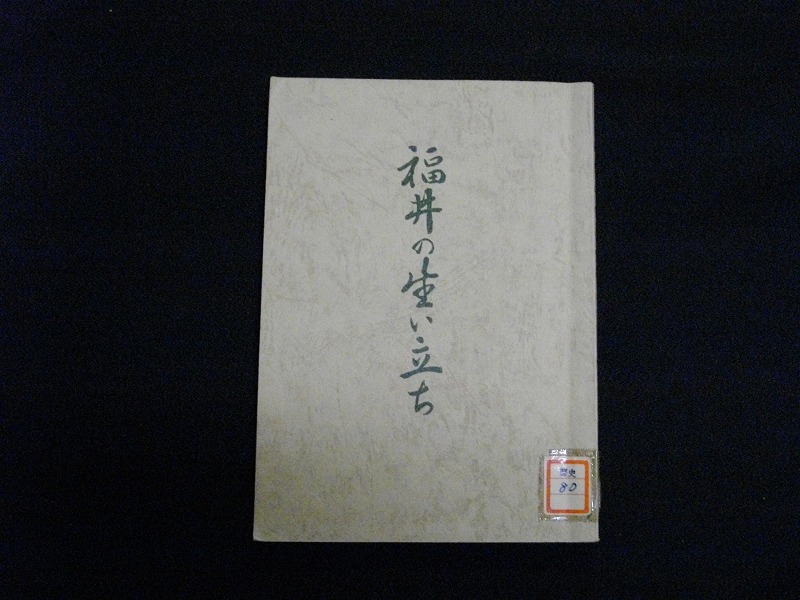 福井の生い立ち
歴史
80